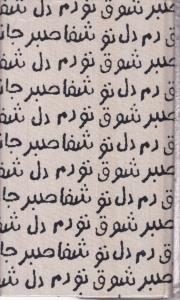 صبر شوق تو دم دل
دم دل تو شفا صبر
صبر شوق تو دم دل
دم دل تو شفا صبر
صبر شوق تو دم دل
دم دل تو شفا صبر
صبر شوق تو دم دل
دم دل تو شفا صبر
صبر شوق تو دم دل
دم دل تو شفا صبر
صبر شوق تو دم دل